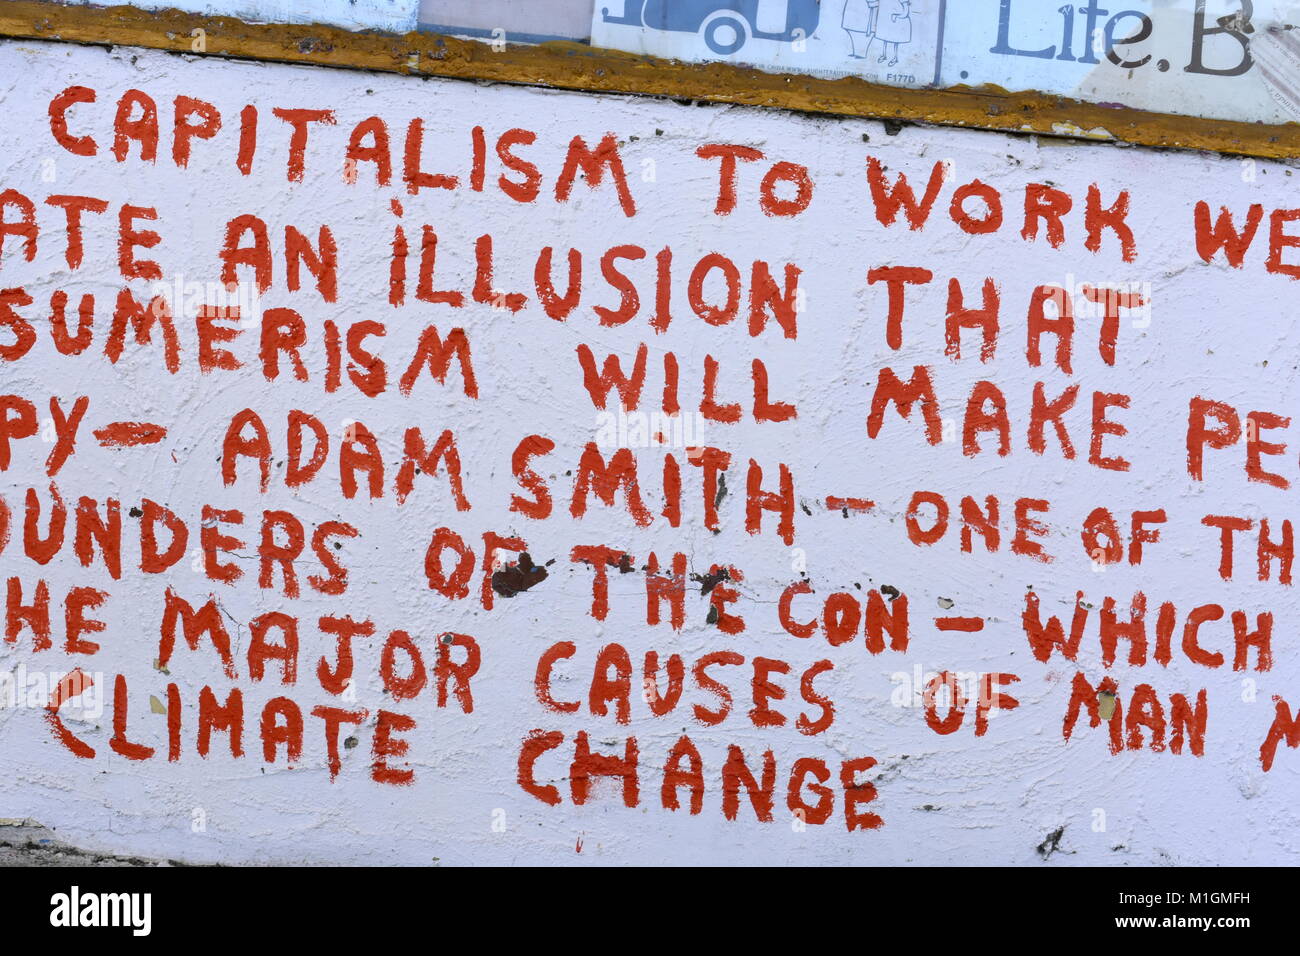 Life. B
IN CHINA WWW. F177D
CAPITALISM TO WORK WE
ATE AN iLLUSION THAT
SUMERISM WILL MAKE PE
PY — ADAM SMiTH — ONE OF TH
OUNDERS OF THE CON — WHICH
HE MAJOR CAUSES OF MAN M
CLIMATE CHANGE
a alamy stock photo
alamy
Image ID: M1GMFH
www.alamy.com